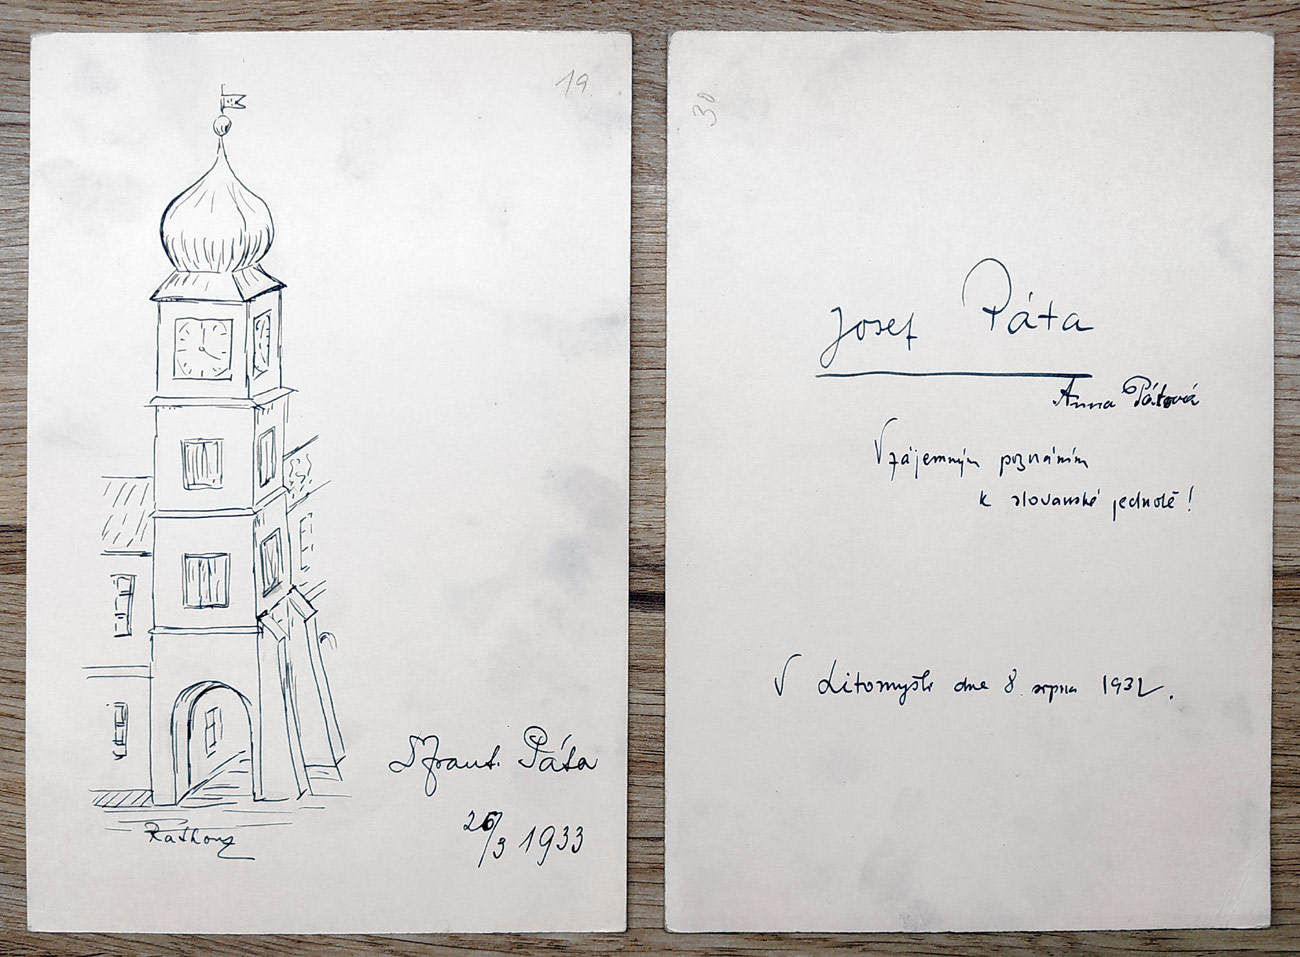 19.
Rathous
Frant. Páta
26/3 1933
30
Josef Páta
Anna Pátová
Vzájemným poznáním
k slovanské jednotě!
V Litomyšli dne 8. srpna 1932.